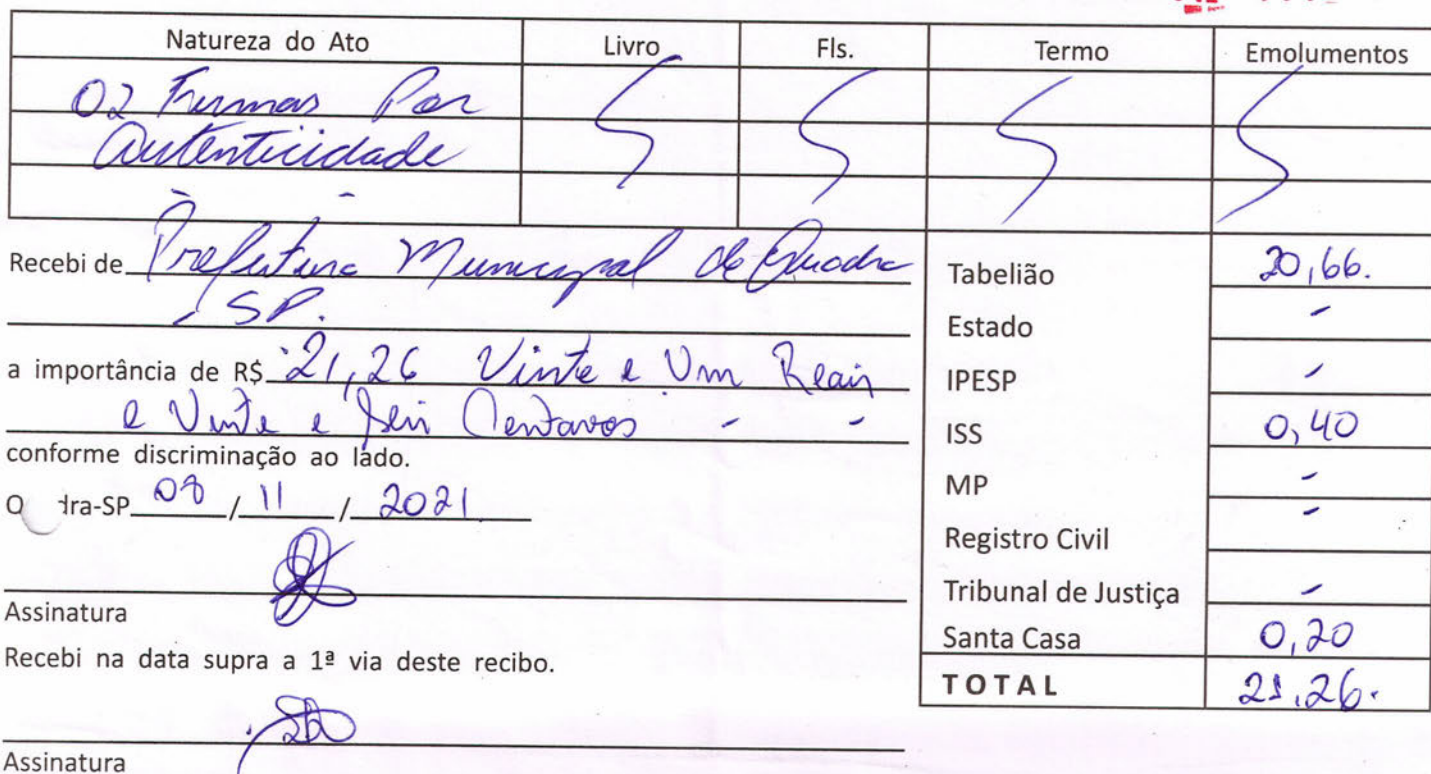 Natureza do Ato Livro Fls. Termo Emolumentos
02 Firmas Por
Autenticidade
Recebi de Prefeitura Municipal de Quadra
SP.
a importância de R$ 21,26 Vinte e Um Reais
e Vinte e Seis Centavos - -
conforme discriminação ao lado.
dra-SP 08/11/2021
Assinatura
Recebi na data supra a 1ª via deste recibo.
Assinatura
Tabelião 20,66.
Estado -
IPESP -
ISS 0,40
MP -
Registro Civil -
Tribunal de Justiça -
Santa Casa 0,20
TOTAL 21,26.